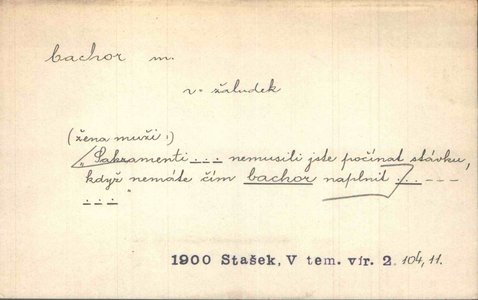 bachor m.
v= žaludek
(žena muži:)
„Sakramenti ... nemusili jste počínat stávku,
když nemáte čím bachor naplnit ... ---
..."
1900 Stašek, V tem. vír. 2. 104, 11.